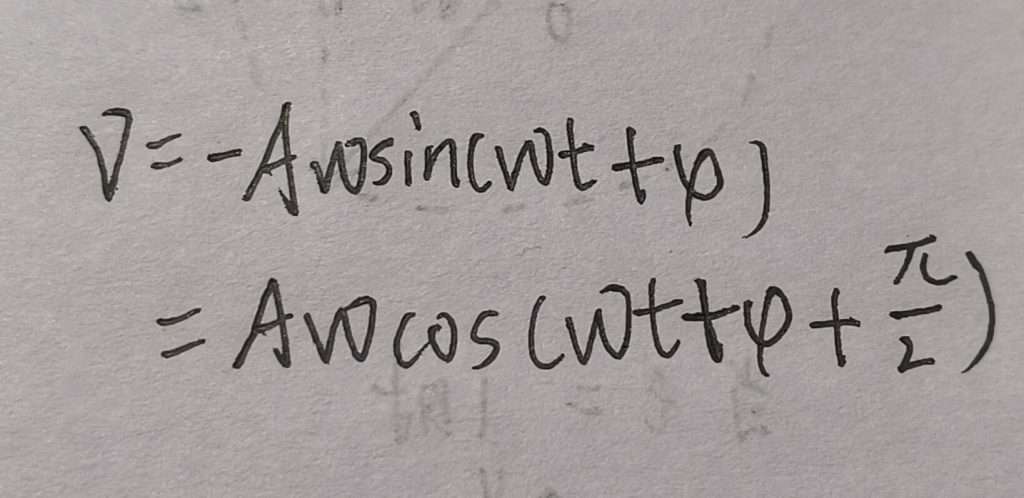 V=-Aωsin(ωt+φ)
=Aωcos(ωt+φ+π/2)